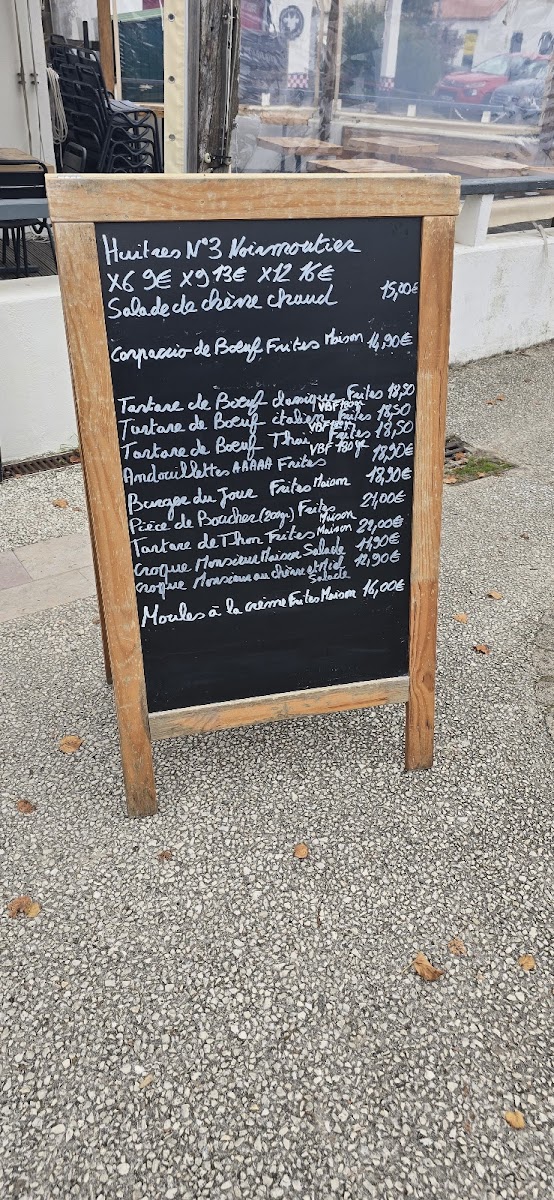 Huitres N°3 Noirmoutier
X6 9€ X9 13€ X12 16€
Salade de chèvre chaud 15,00€
Carpaccio de Boeuf Frites Maison 14,90€
Tartare de Boeuf classique Frites 18,50
VBF 180gr
Tartare de Boeuf italien Frites 18,50
VBF 180gr
Tartare de Boeuf Thai Frites 18,50
VBF 180gr
Andouillettes AAAAA Frites 18,90€
Burger du Jour Frites Maison 18,90€
Pièce de Boucher (200gr) Frites Maison 21,00€
Tartare de Thon Frites Maison 22,00€
Croque Monsieur Maison Salade 11,90€
Croque Monsieur au chèvre et Miel Salade 12,90€
Moules à la crème Frites Maison 16,00€